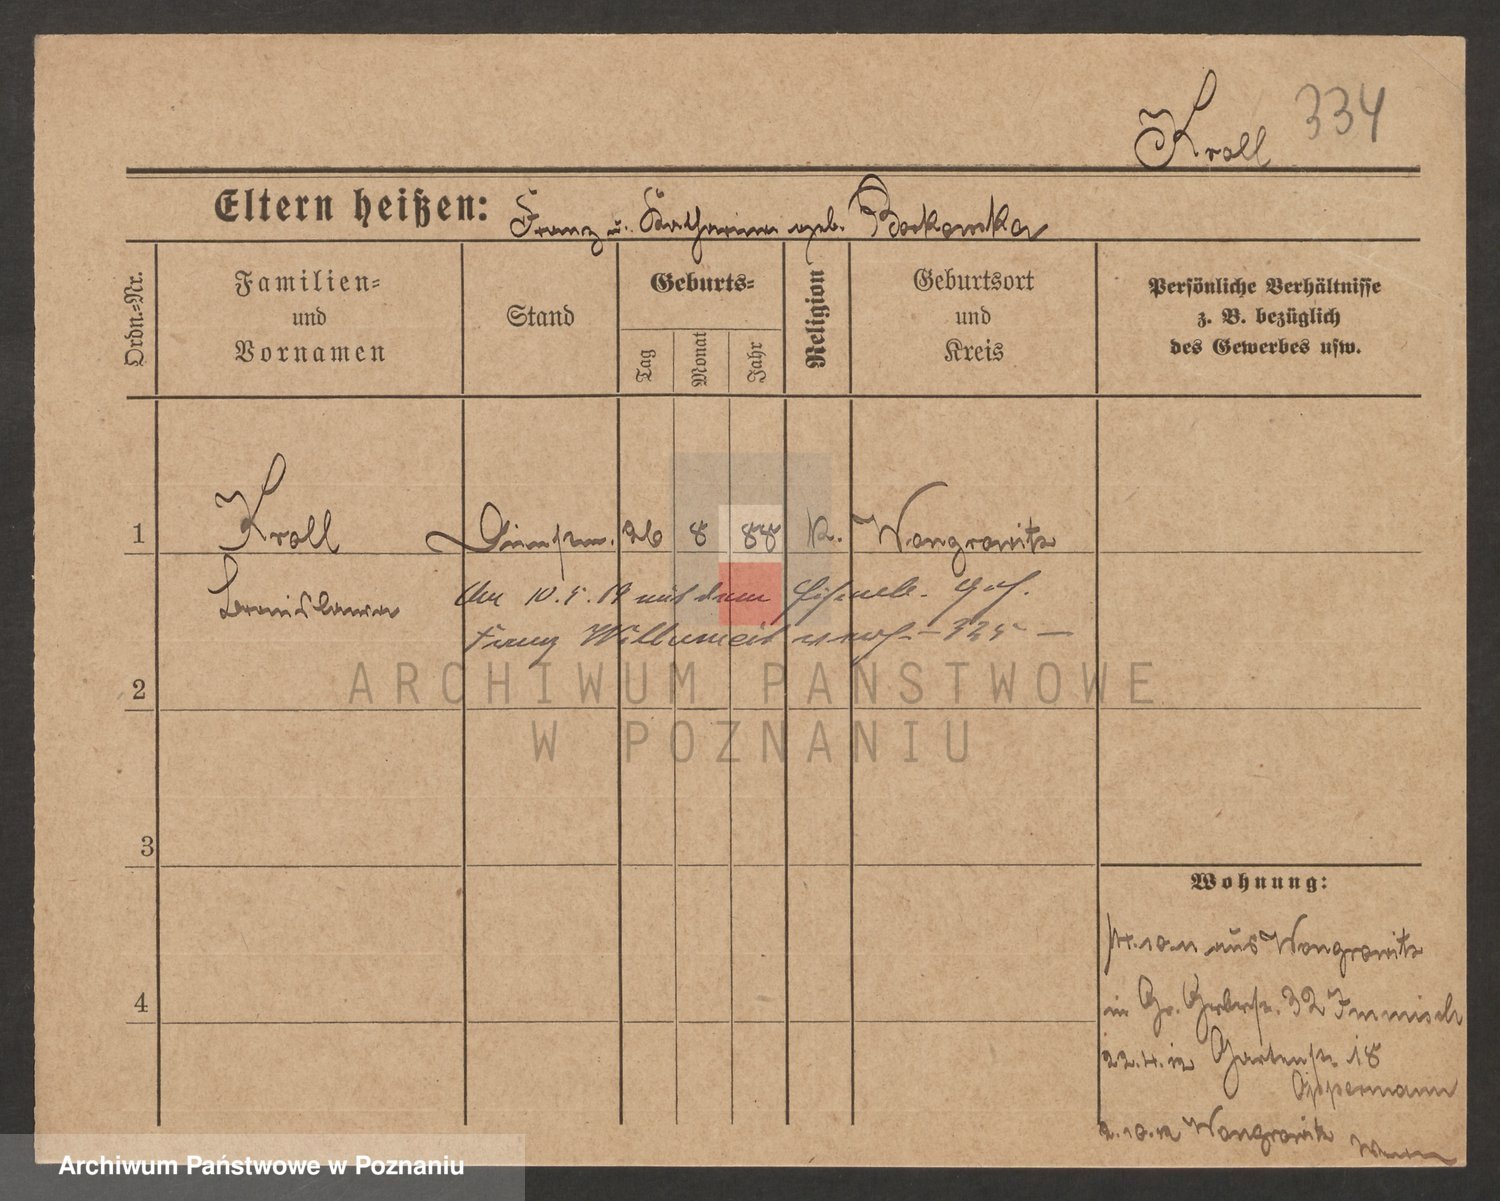 Kroll 334
Eltern heißen: Franz u. Katharina geb. Borkowska
Ordn.-Nr.
Familien-
und
Vornamen
Stand
Geburts-
Tag
Monat
Jahr
Religion
Geburtsort
und
Kreis
Persönliche Verhältnisse
z. B. bezüglich
des Gewerbes usw.
1 Kroll 26 8 88 K. Wongrowitz
Bronislawa Am 10.5.19 mit dem
Franz 325 —
2
ARCHIWUM PAŃSTWOWE
W POZNANIU
3
Wohnung:
4
10.11 aus Wongrowitz
in Gr. Gerberstr. 32
22.4.12 Gartenstr. 18
Oppermann
2.10.12 Wongrowitz
Archiwum Państwowe w Poznaniu